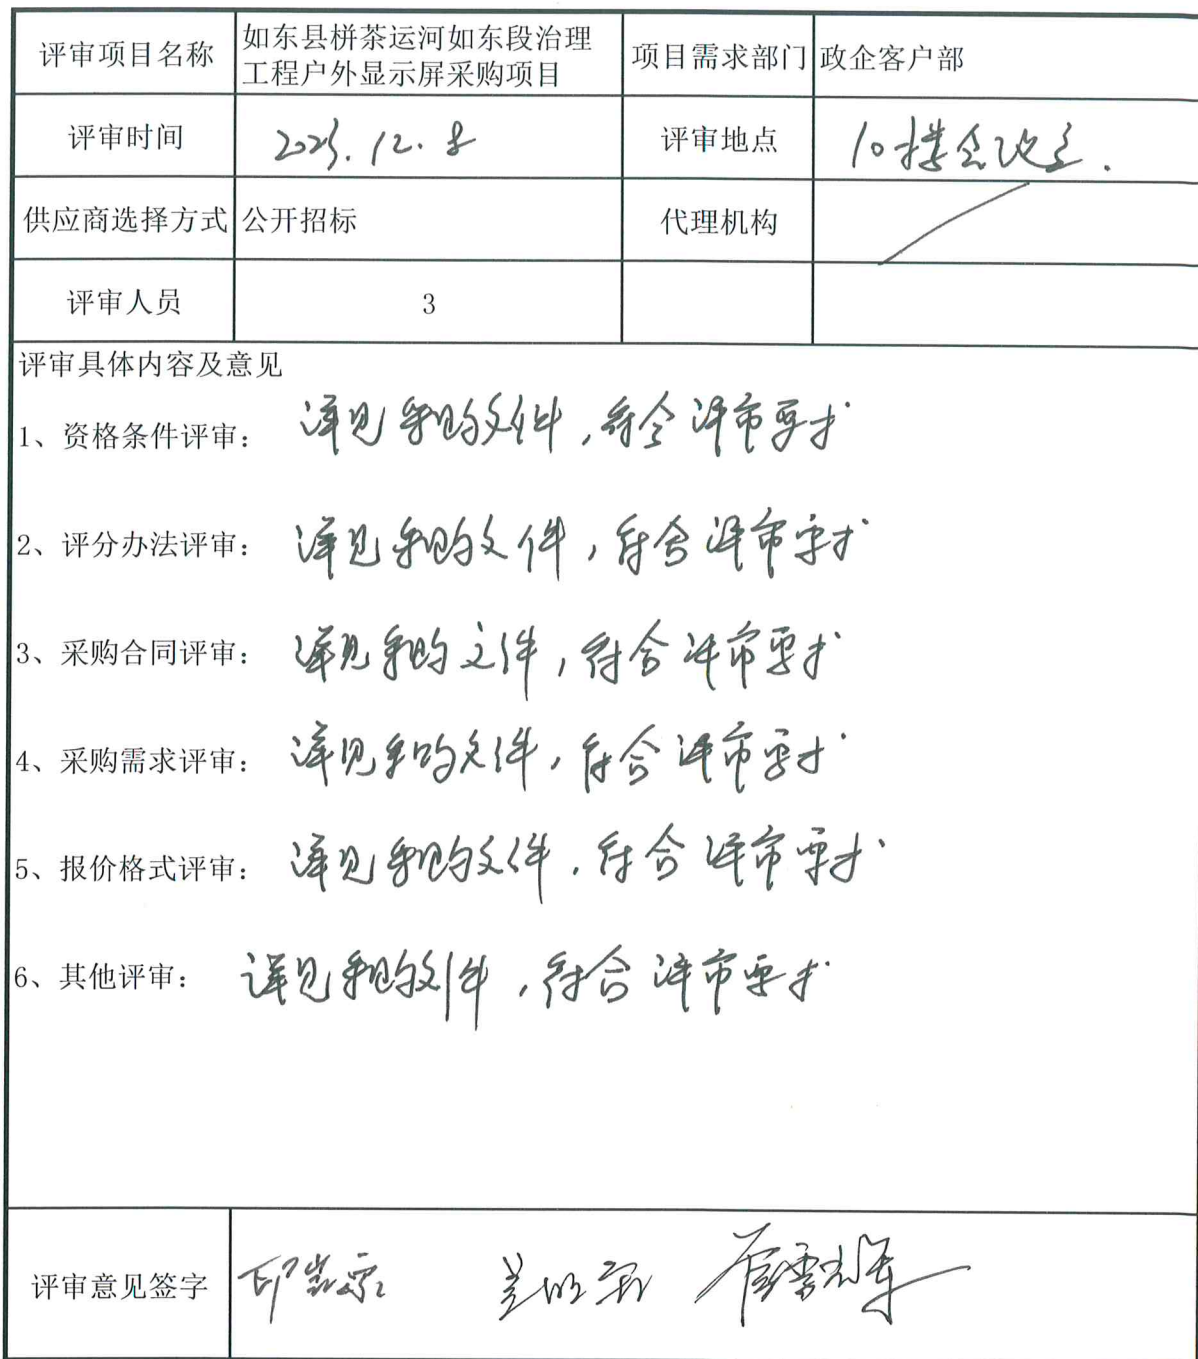 评审项目名称
如东县栟茶运河如东段治理
工程户外显示屏采购项目
项目需求部门
政企客户部
评审时间
评审地点
10楼会议室.
供应商选择方式
公开招标
代理机构
评审人员
3
评审具体内容及意见
1、资格条件评审: 详见采购文件,符合评审要求
2、评分办法评审: 详见采购文件,符合评审要求
3、采购合同评审: 详见采购文件,符合评审要求
4、采购需求评审: 详见采购文件,符合评审要求
5、报价格式评审: 详见采购文件,符合评审要求
6、其他评审: 详见采购文件,符合评审要求
评审意见签字